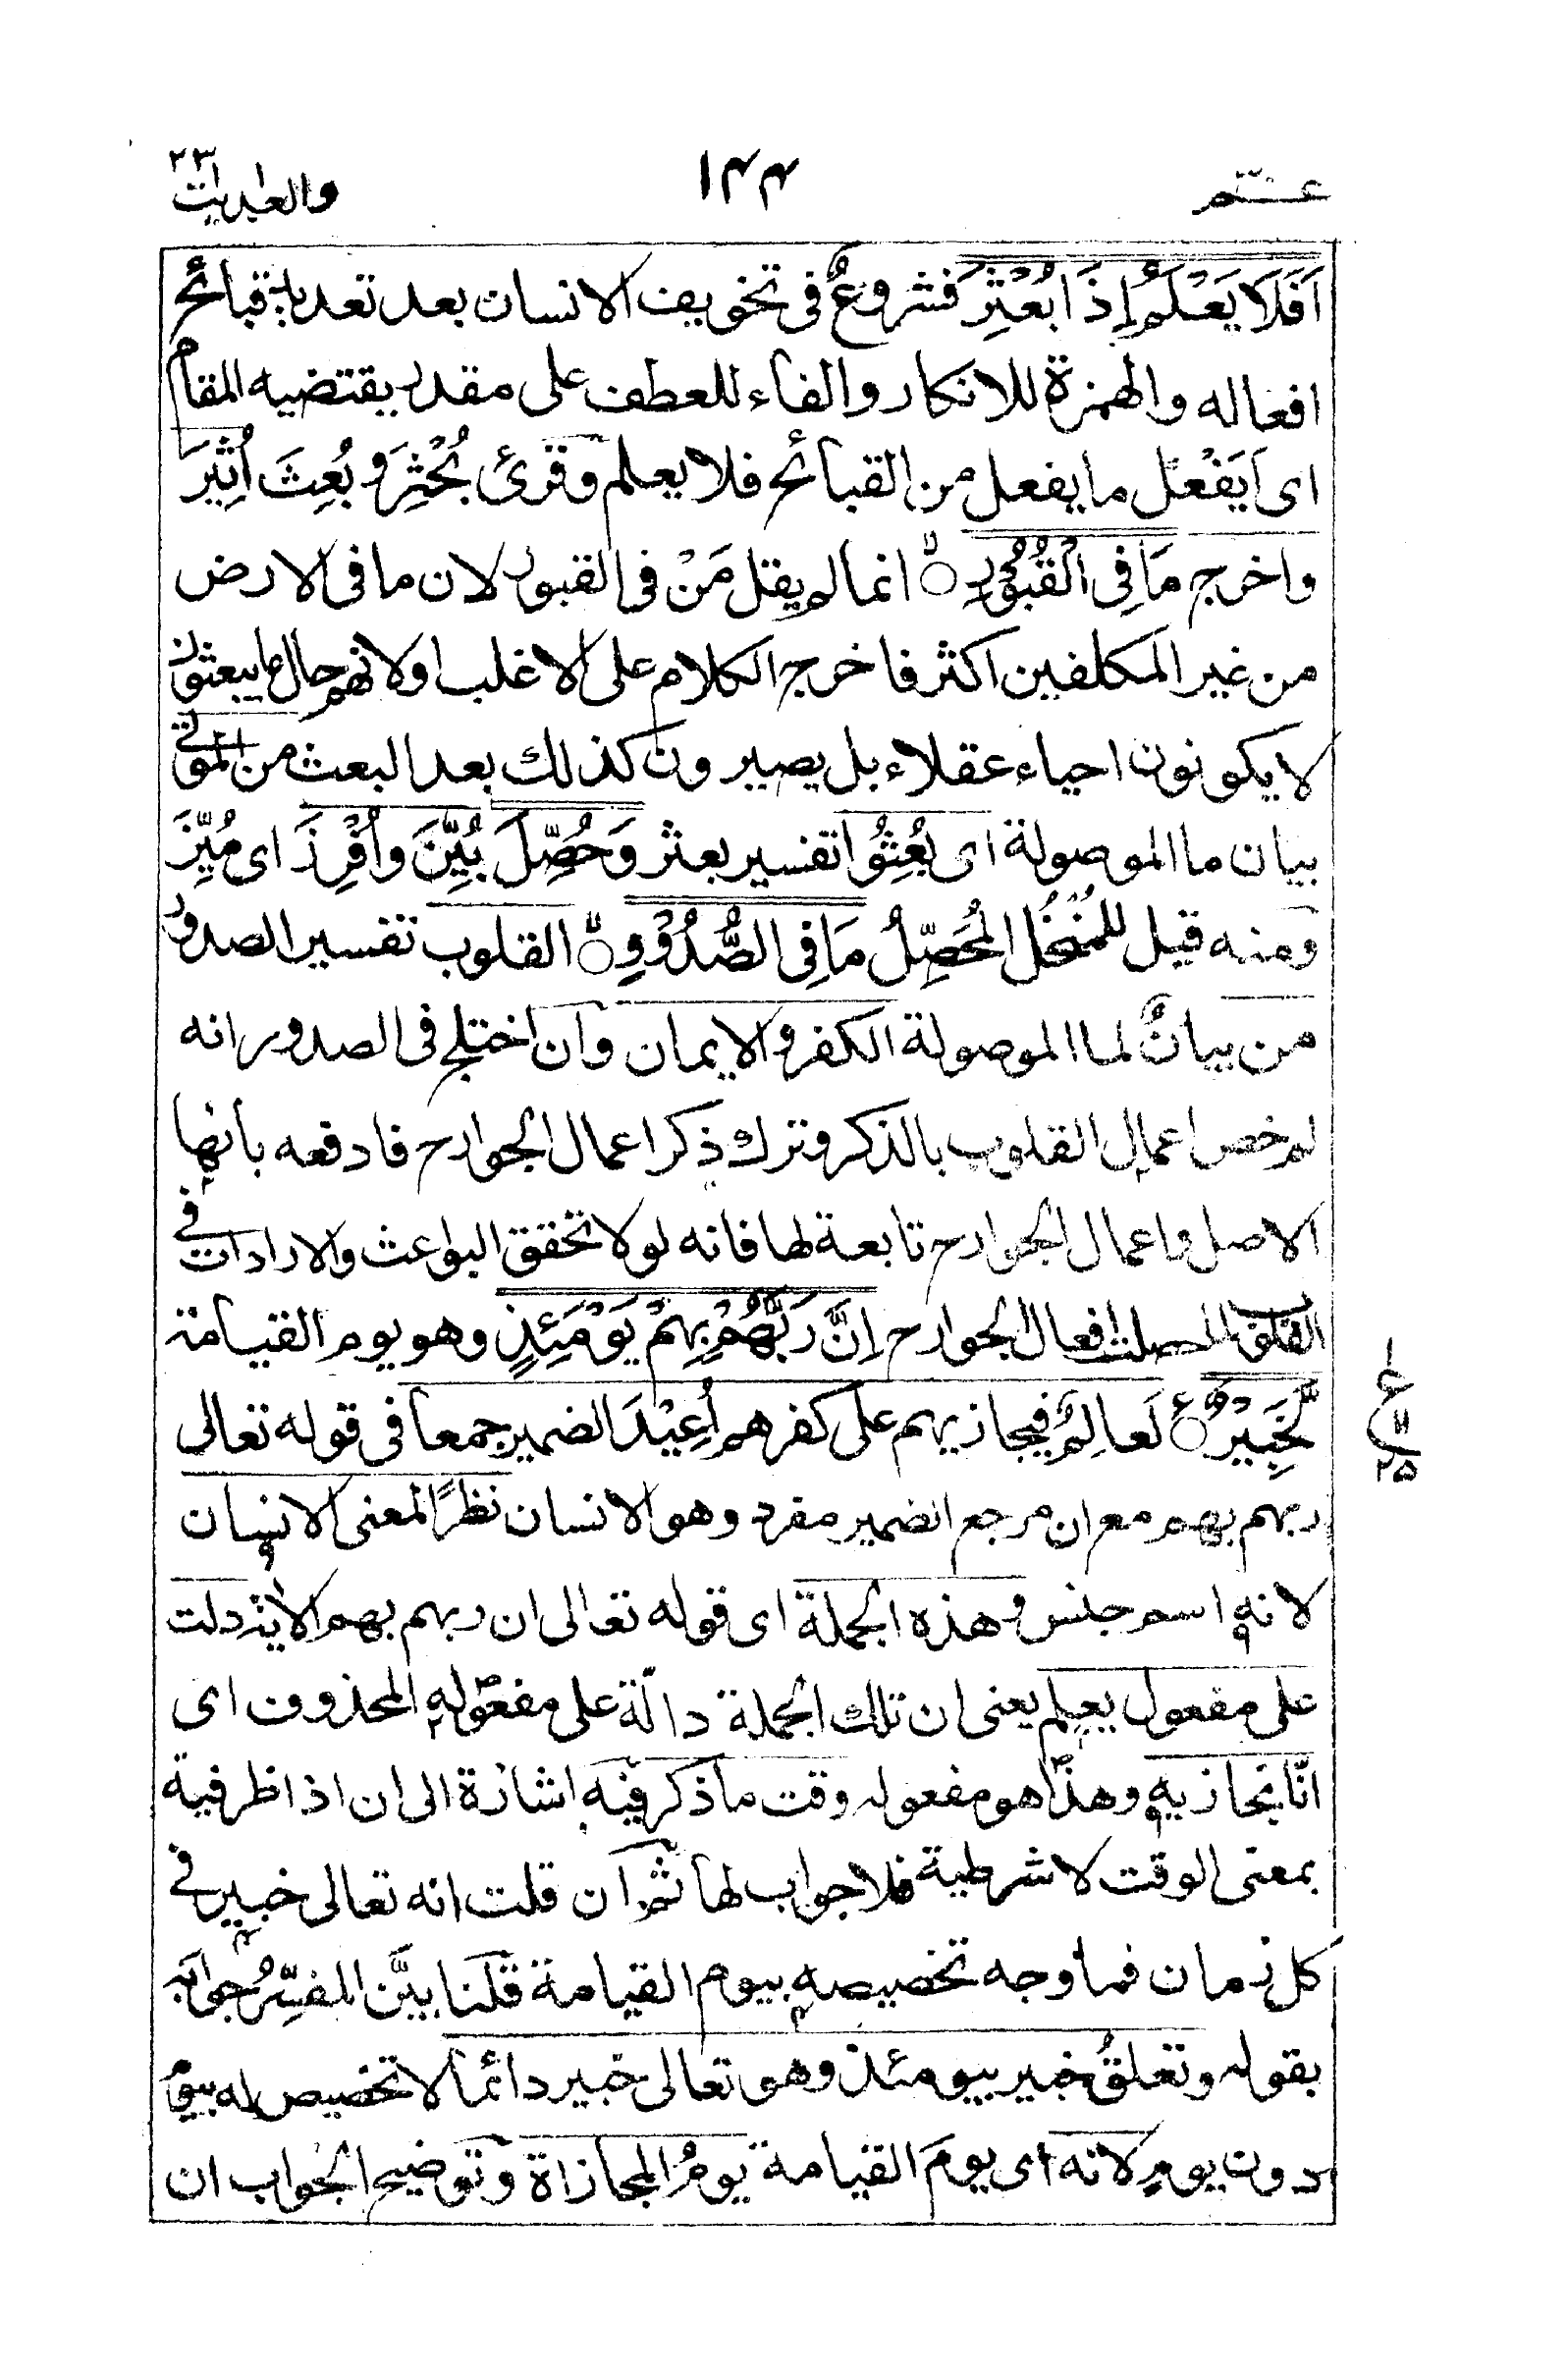 عـــتم ١٤٤ والعٰدیٰت ٢٣
اَفَلَا يَعْلَمُ اِذَا بُعْثِرَ فشروعٌ فی تخويف الانسان بعد تعديد قبائح
افعاله والهمزة للانكار والفاء للعطف علی مقدر يقتضيه المقام
ای اَيَفْعَلُ ما يفعل من القبائح فلا يعلم وقرئ بُحْثِرَ و بُعِثَ اُثِيْرَ
واخرج مَا فِی الْقُبُوْرِ انما لم يقل مَنْ فی القبور لان ما فی الارض
من غير المكلفين اكثر فاخرج الكلام علی الاغلب اولانهم حال ما يبعثون
لا يكونون احياء عقلاء بل يصيرون كذلك بعد البعث من الموتی
بيان ما الموصولة ای بُعِثُوا تفسير بعثر وَحُصِّلَ بُيِّنَ واُفْرِزَ ای مُيِّزَ
ومنه قيل للمُنْخُل المُحَصِّلُ مَا فِی الصُّدُوْرِ القلوب تفسير الصدور
من بيانٌ لما الموصولة الكفر والايمان وان اختلج فی الصدور انه
لم خص اعمال القلوب بالذكر وترك ذكر اعمال الجوارح فادفعه بانها
الاصل واعمال الجوارح تابعة لها فانه لولا تحقق البواعث والارادات فی
القلوب لما حصلت افعال الجوارح اِنَّ رَبَّهُمْ بِهِمْ يَوْمَئِذٍ وهو يوم القيامة
لَّخَبِيْرٌ لَعالِمٌ فيجازيهم علی كفرهم اُعِيْدَ الضمير جمعا فی قوله تعالی
ربهم بهم مع ان مرجع الضمير مفرد وهو الانسان نظرًا لمعنی الانسان
لانه اسم جنس و هذه الجملة ای قوله تعالی ان ربهم بهم الاية دلت
علی مفعول يعلم يعنی ان تلك الجملة دالّة علی مفعوله المحذوف ای
انّا نجازيه وهذا هو مفعوله وقت ما ذكر فيه اشارة الی ان اذا ظرفية
بمعنی الوقت لا شرطية فلا جواب لها ثم ان قلت انه تعالی خبير فی
كل زمان فما وجه تخصيصه بيوم القيامة قلنا بيَّن المفسِّرُ جوابَه
بقوله وتعلقُ خبير بيومئذ وهو تعالی خبير دائما لا تخصيص له بيومٍ
دون يومٍ لانه ای يومَ القيامة يومُ المجازاة وتوضيح الجواب ان
ع
١١
٢٥